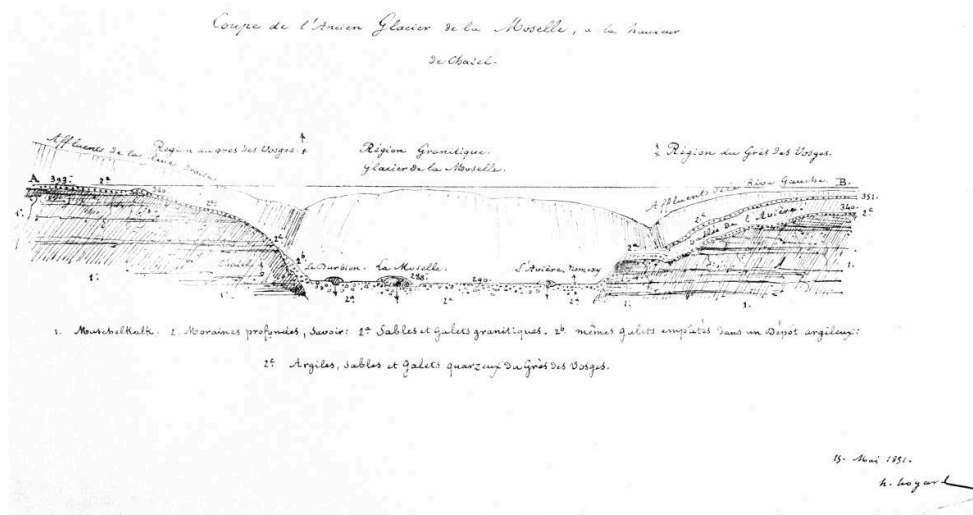 Coupe de l'Ancien Glacier de la Moselle, à la hauteur
de Chatel.
Affluents de la Rive Droite.
Région du grès des Vosges.
Région Granitique.
Glacier de la Moselle.
Région du Grès des Vosges.
Affluents de la Rive Gauche.
A
B.
351.
340.
Vallée de l'Avière.
Le Durbion. La Moselle.
L'Avière, Nomexy
288.
290.
1. Muschelkalk. 2. Moraines profondes, Savoir: 2ª Sables et Galets granitiques. 2ᵇ mêmes galets empâtés dans un Dépôt argileux:
2ᶜ Argiles, Sables et Galets quarzeux du Grès des Vosges.
15. Mai 1851.
h. hogard